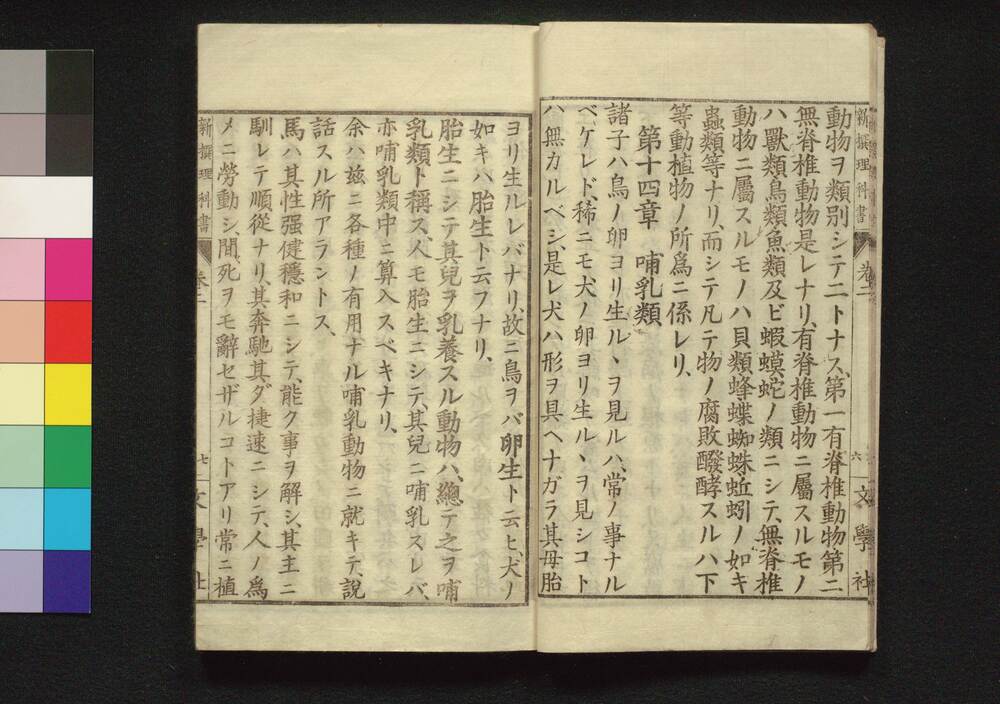 新撰理科書 卷二 六 文學社
動物ヲ類別シテ二トナス、第一有脊椎動物第二
無脊椎動物是レナリ、有脊椎動物ニ屬スルモノ
ハ獸類鳥類魚類及ビ蝦蟆蛇ノ類ニシテ、無脊椎
動物ニ屬スルモノハ貝類蜂蝶蜘蛛蚯蚓ノ如キ
蟲類等ナリ、而シテ凡テ物ノ腐敗醱酵スルハ下
等動植物ノ所爲ニ係レリ、
第十四章 哺乳類
諸子ハ鳥ノ卵ヨリ生ルヽヲ見ルハ、常ノ事ナル
ベケレド、稀ニモ犬ノ卵ヨリ生ルヽヲ見シコト
ハ無カルベシ、是レ犬ハ形ヲ具ヘナガラ其母胎
ヨリ生ルレバナリ、故ニ鳥ヲバ卵生ト云ヒ、犬ノ
如キハ胎生ト云フナリ、
胎生ニシテ其兒ヲ乳養スル動物ハ、總テ之ヲ哺
乳類ト稱ス、人モ胎生ニシテ、其兒ニ哺乳スレバ、
亦哺乳類中ニ算入スベキナリ、
余ハ玆ニ各種ノ有用ナル哺乳動物ニ就キテ、說
話スル所アラントス、
馬ハ其性强健穩和ニシテ、能ク事ヲ解シ、其主ニ
馴レテ順從ナリ、其奔馳其ダ捷速ニシテ、人ノ爲
メニ勞動シ、間、死ヲモ辭セザルコトアリ常ニ植
新撰理科書 卷二 七 文學社